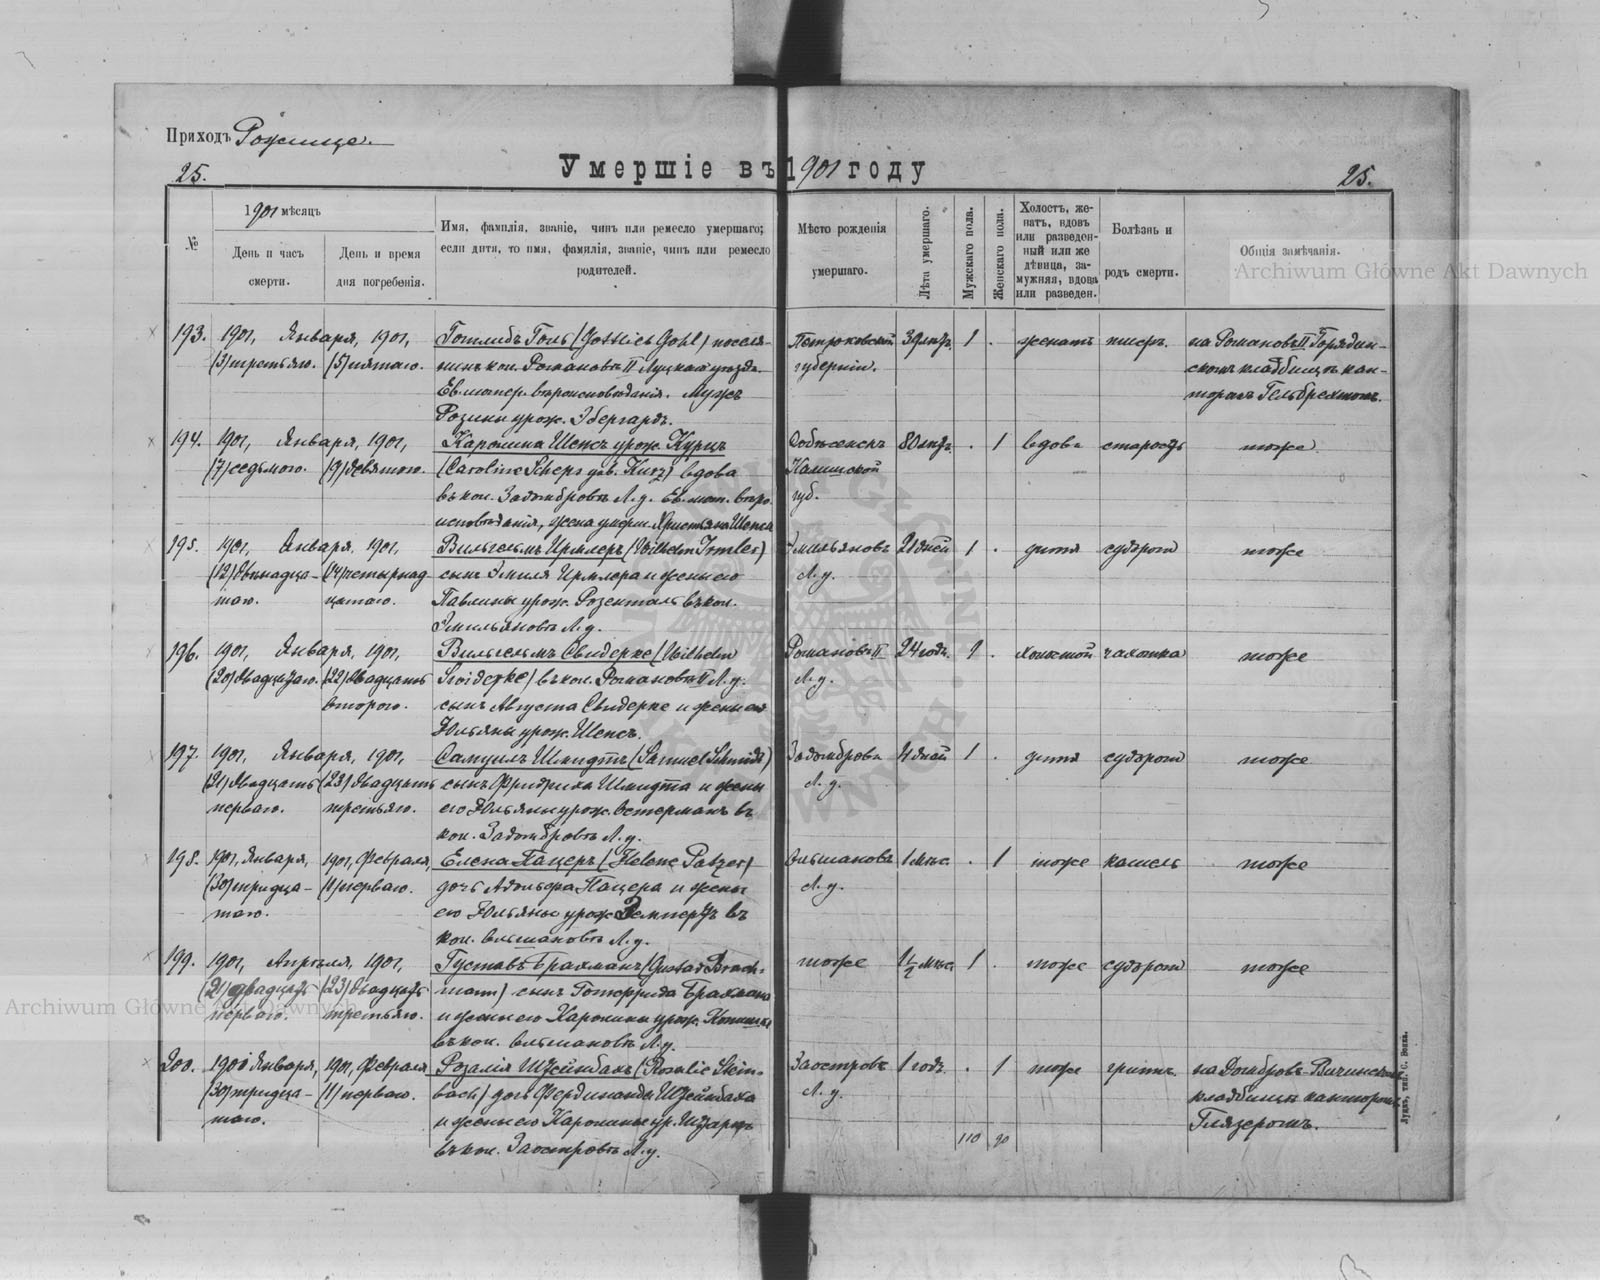 Приходъ Рожище.
Умершіе въ 1901 году
25.
25.
№
1901 мѣсяцъ
День и часъ
смерти.
День и время
дня погребенія.
Имя, фамилія, званіе, чинъ или ремесло умершаго;
если дитя, то имя, фамилія, званіе, чинъ или ремесло
родителей.
Мѣсто рожденія
умершаго.
Лѣта умершаго.
Мужскаго пола.
Женскаго пола.
Холостъ, же-
натъ, вдовъ
или разведен-
ный или же
дѣвица, за-
мужняя, вдова
или разведен.
Болѣзнь и
родъ смерти.
Общія замѣчанія.
Archiwum Główne Akt Dawnych
193. 1901, Января, 1901, Готлибъ Голь (Gottlieb Gohl) поселя- Петроковской 1 . женатъ на Романовъ II
(3) третьяго. (5) пятаго. нинъ кол. Романовъ II Луцкаго уѣзда. губерніи. скомъ кладбищѣ кан-
Ев. лютер. вѣроисповѣданія. Мужъ торомъ Гельбрехтомъ.
Розины урож. Эбергардъ.
194. 1901, Января, 1901, Каролина Шепсъ урож. Курцъ 80 лѣтъ. . 1 вдова старость тоже
(7) седьмого. (9) девятого. (Caroline Scheps geb. Kurz) вдова Калишской
въ кол. Задомбровъ Л. у. Ев. лют. вѣро- губ.
исповѣданія, жена умерш. Христьяна Шепсъ
195. 1901, Января, 1901, Вильгельмъ Ирмлеръ (Wilhelm Irmler) Эмильяновъ 21 дней 1 . дитя судороги тоже
(12) двѣнадца- (14) четырнад- сынъ Эмиля Ирмлера и жены его Л. у.
таго. цатаго. Павлины урож. Розенталь въ кол.
Эмильяновъ Л. у.
196. 1901, Января, 1901, Вильгельмъ Свидерке (Wilhelm Романовъ II 24 годъ. 1 . холостой чахотка тоже
(20) двадцатаго. (22) двадцать въ кол. Романовъ II Л. у. Л. у.
второго. сынъ Августа Свидерке и жены его
Юльяны урож. Шепсъ.
197. 1901, Января, 1901, Самуилъ Шмидтъ (Samuel Schmidt) Задомбровъ 4 дней 1 . дитя судороги тоже
(21) двадцать (23) двадцать сынъ Фридриха Шмидта и жены Л. у.
перваго. третьяго. его Юльяны урож. Остерманъ въ
кол. Задомбровъ Л. у.
198. 1901, Января, 1901, Февраля, Елена Пацеръ (Helene Patzer) Ольшановъ 1 мѣс. . 1 тоже кашель тоже
(30) тридца- (1) перваго. дочь Адольфа Пацера и жены Л. у.
таго. его Юльяны урож. въ
кол. Ольшановъ Л. у.
199. 1901, Апрѣля, 1901, Густавъ Брахманъ (Gustav Brach- тоже 1½ мѣс. 1 . тоже судороги тоже
(21) двадцать (23) двадцать mann) сынъ Готфрида Брахмана
перваго. третьяго. и жены его Каролины урож.
въ кол. Ольшановъ Л. у.
Archiwum Główne Akt Dawnych
200. 1901 Января, 1901, Февраля Розалія Штейнбахъ (Rosalie Stein- Заостровъ 1 годъ. . 1 тоже на Домбровъ
(30) тридца- (1) перваго. bach) дочь Фердинанда Штейнбаха Л. у. кладбищѣ канторомъ
таго. и жены его Каролины ур. Глязеромъ.
въ кол. Заостровъ Л. у.
110 90
Луцкъ, тип. С. Бонка.